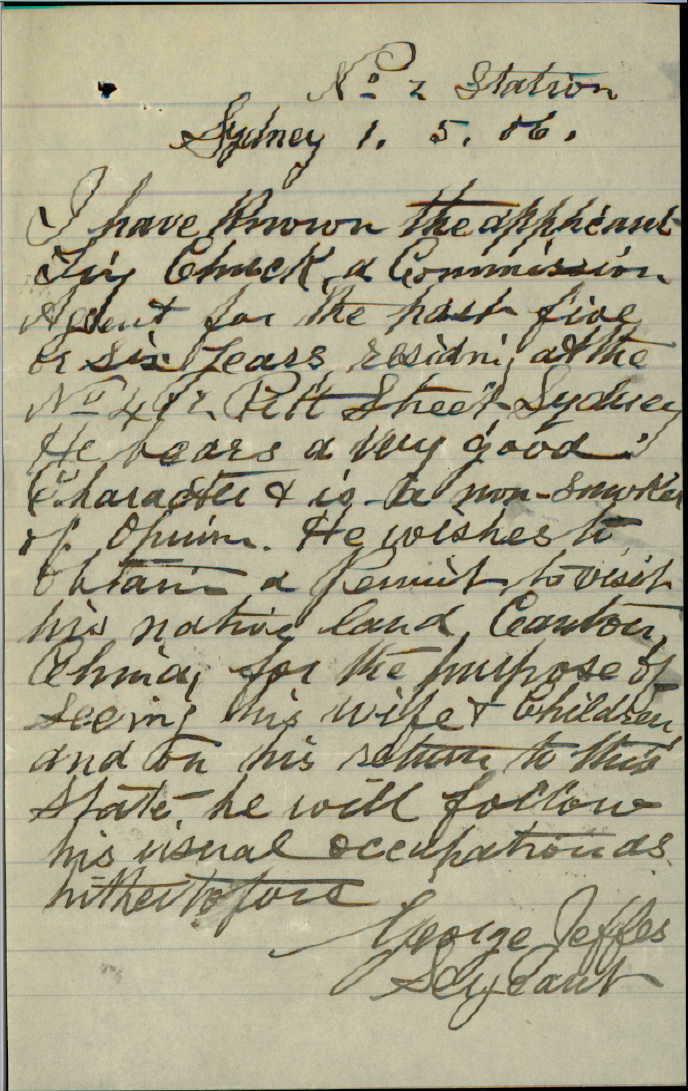 No 2 Station
Sydney 1. 5. 06.
I have known the applicant
Chuck, a Commission
Agent for the past five
or six years, residing at the
No Pitt Street Sydney
He bears a very good
Character & is a non-smoker
of Opium. He wishes to
obtain a Permit to visit
his native land, Canton,
China, for the purpose of
seeing his wife & Children
and on his return to this
State, he will follow
his usual occupation as
hithertofore
George Jeffes
Sergeant